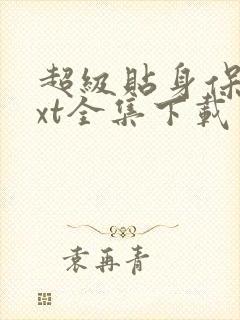 超級貼身保
xt全集下載
袁再青